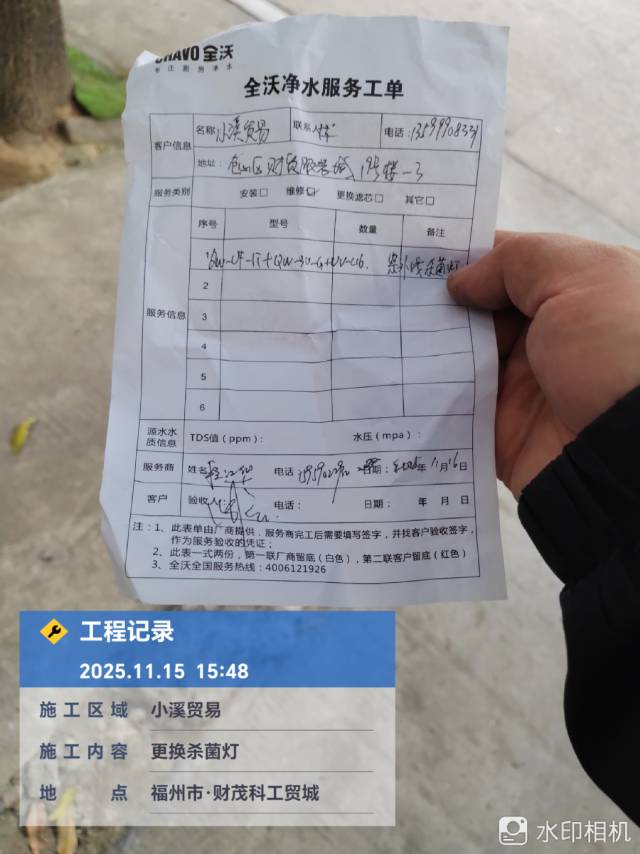 CHAVO 全沃
专注厨房净水
全沃净水服务工单
客户信息
名称 小溪贸易 联系 电话:
地址:
服务类别 安装□ 维修☑ 更换滤芯□ 其它□
服务信息
序号 型号 数量 备注
1 紫外线杀菌灯
2
3
4
5
6
源水水质信息 TDS值(ppm): 水压(mpa):
服务商 姓名 电话 日期: 2025年11月16日
客户 验收人: 电话: 日期: 年 月 日
注:1、此表单由厂商提供,服务商完工后需要填写签字,并找客户验收签字,
作为服务验收的凭证;
2、此表一式两份,第一联厂商留底(白色),第二联客户留底(红色)
3、全沃全国服务热线:4006121926
工程记录
2025.11.15 15:48
施工区域 小溪贸易
施工内容 更换杀菌灯
地点 福州市·财茂科工贸城
水印相机